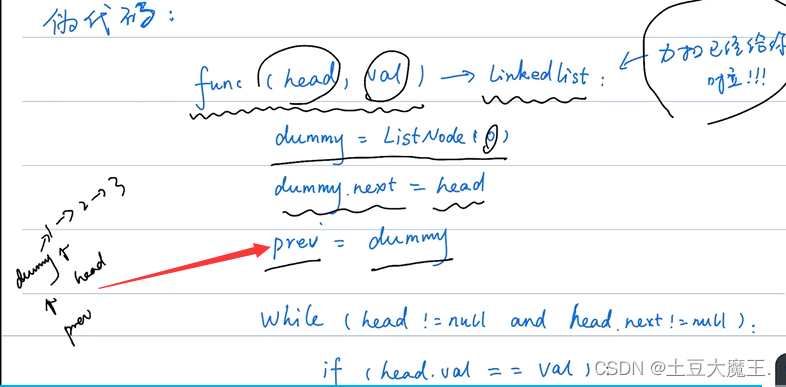 伪代码:
func (head, val) → Linkedlist:
力扣已经给你
dummy = ListNode(0)
dummy.next = head
prev = dummy
dummy → 1 → 2 → 3
head
prev
while (head != null and head.next != null):
if (head.val == val):
CSDN @土豆大魔王.